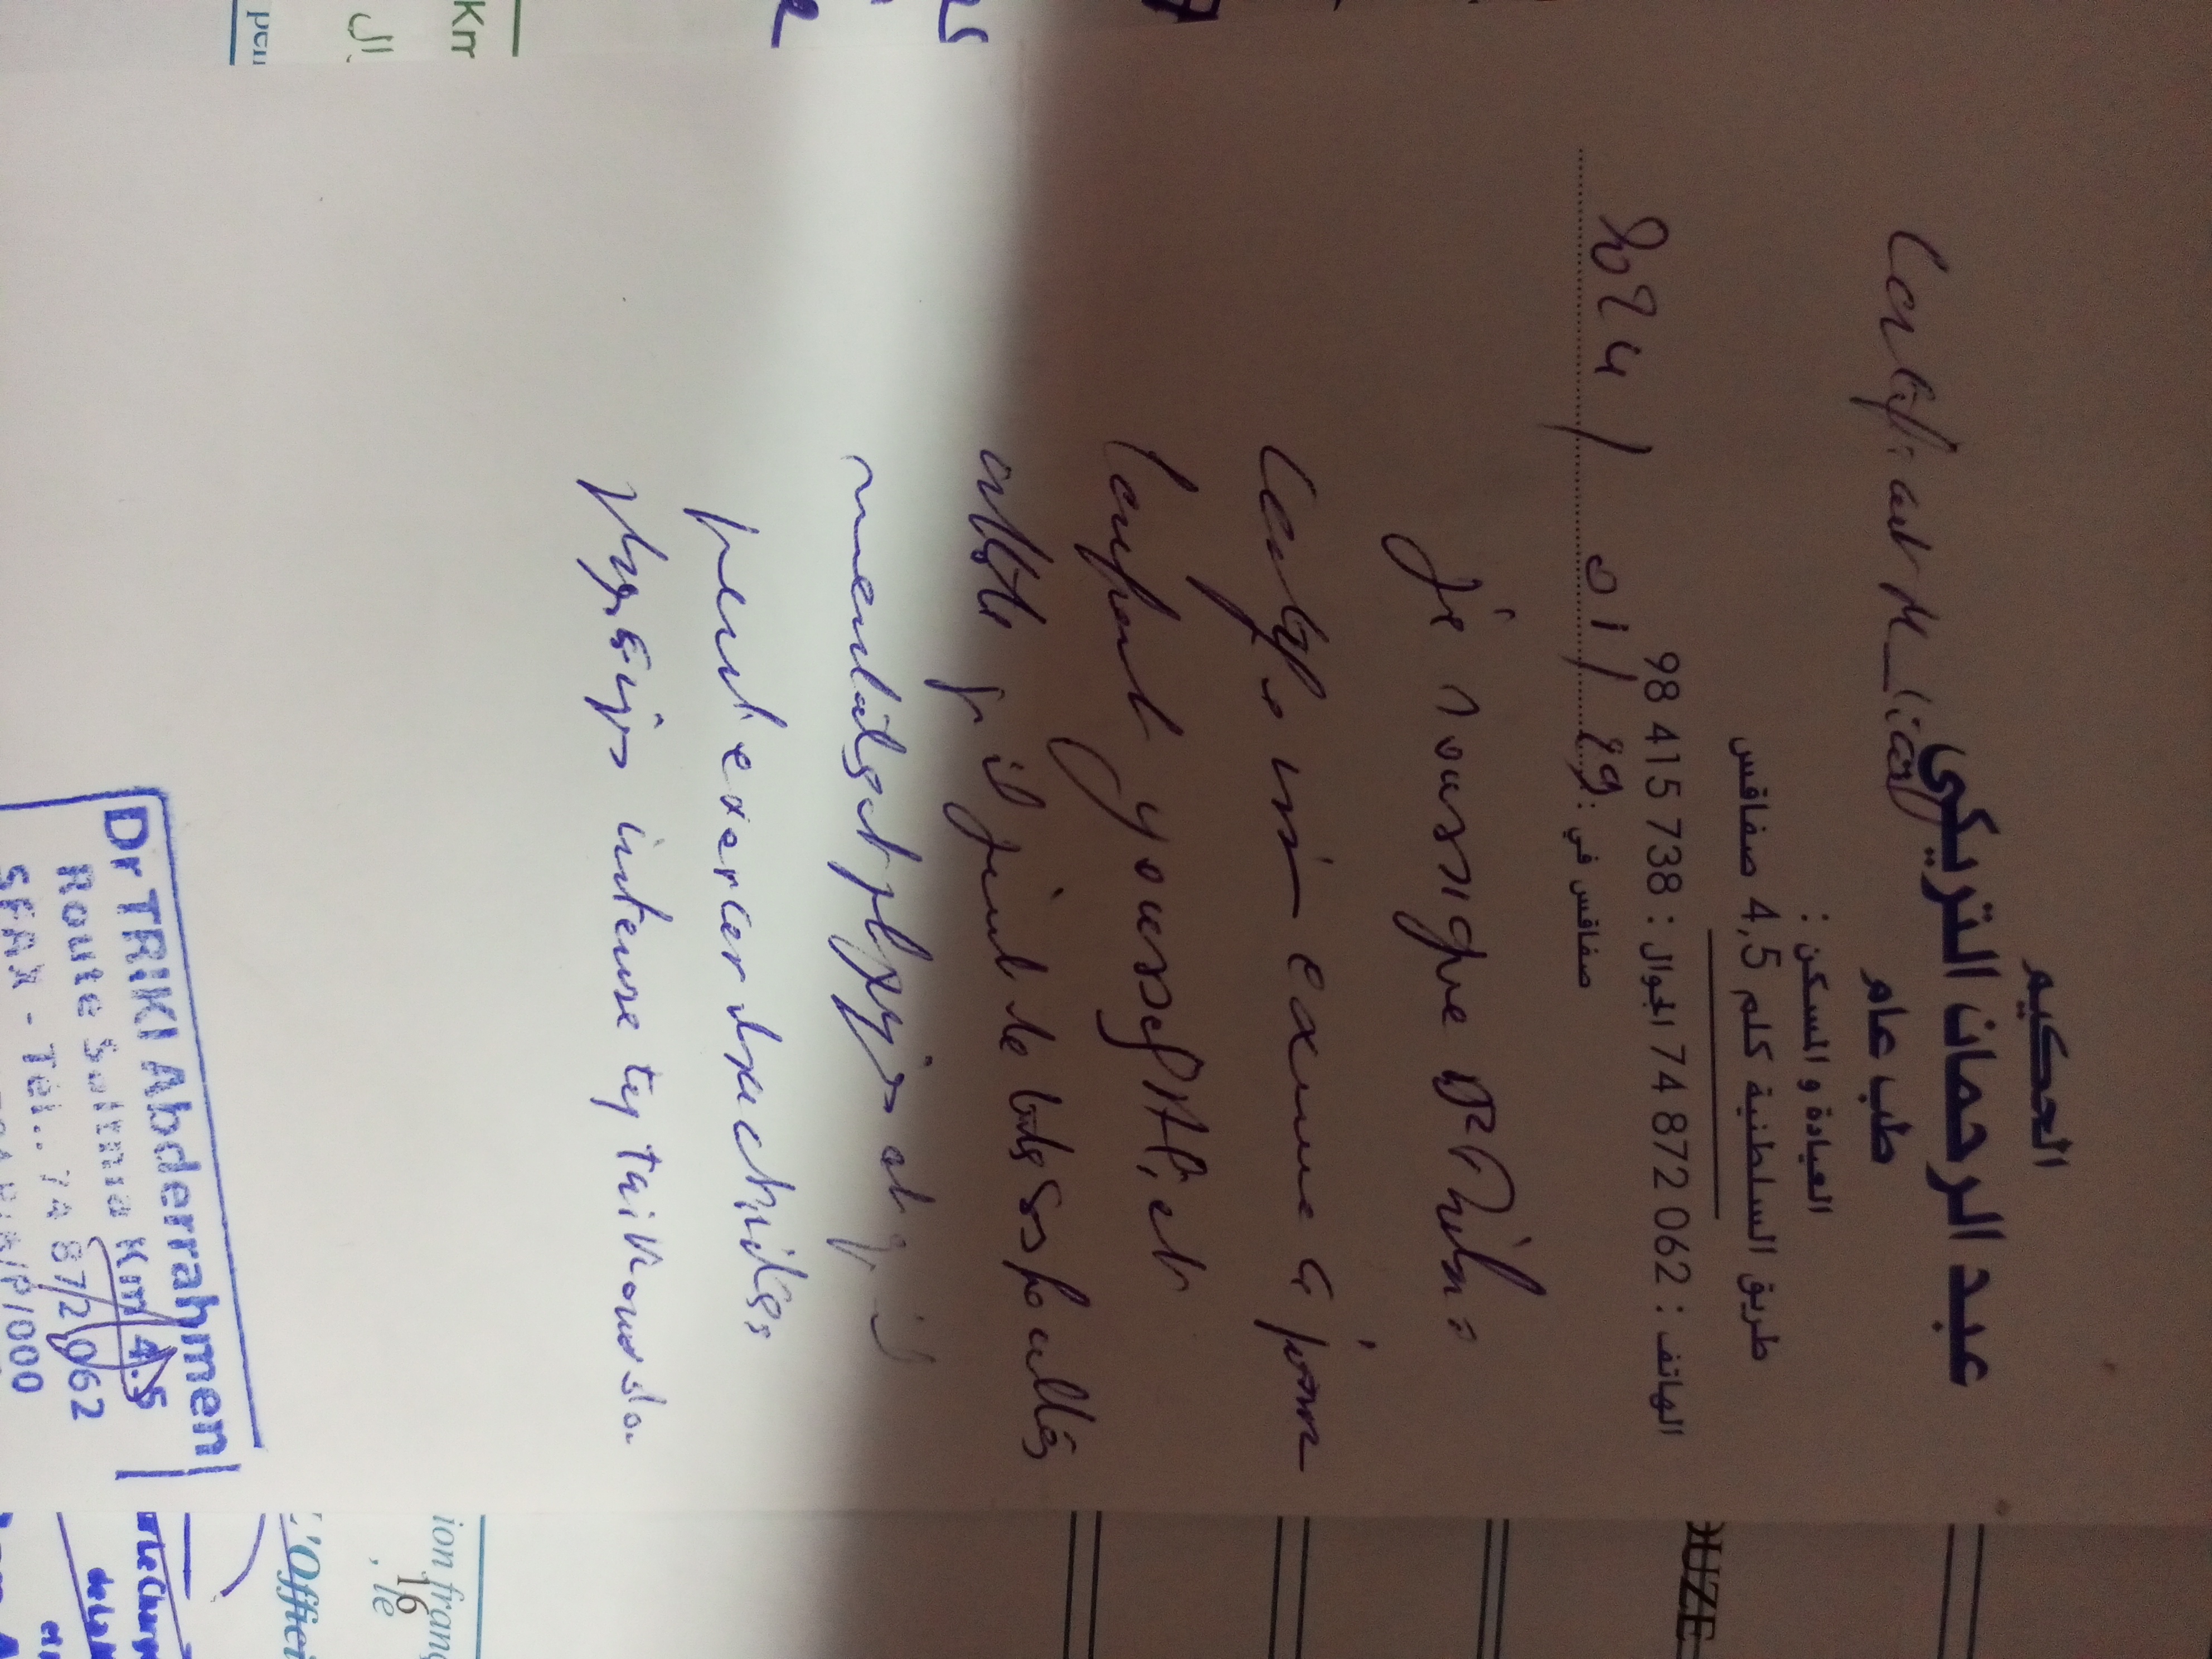 الحكيم
عبد الرحمان التريكي
طب عام
العيادة و السكن :
طريق السلطنية كلم 4,5 صفاقس
الهاتف : 74 872 062 الجوال : 98 415 738
صفاقس في : 29 / 01 / 2024
Certificat Médical
Je soussigné Dr Triki
Certifie avoir examiné ce jour
l'enfant youssef et
atteste qu'il jouit de toutes ses facultés
mentales et physiques et qu'il
peut exercer des activités
physiques intense
Dr TRIKI Abderrahmen
Route Soltnia Km 4.5
SFAX - Tél.. 74 872 062
/P/000
Km
ion franç
16
, le
L'Offici
OUZE